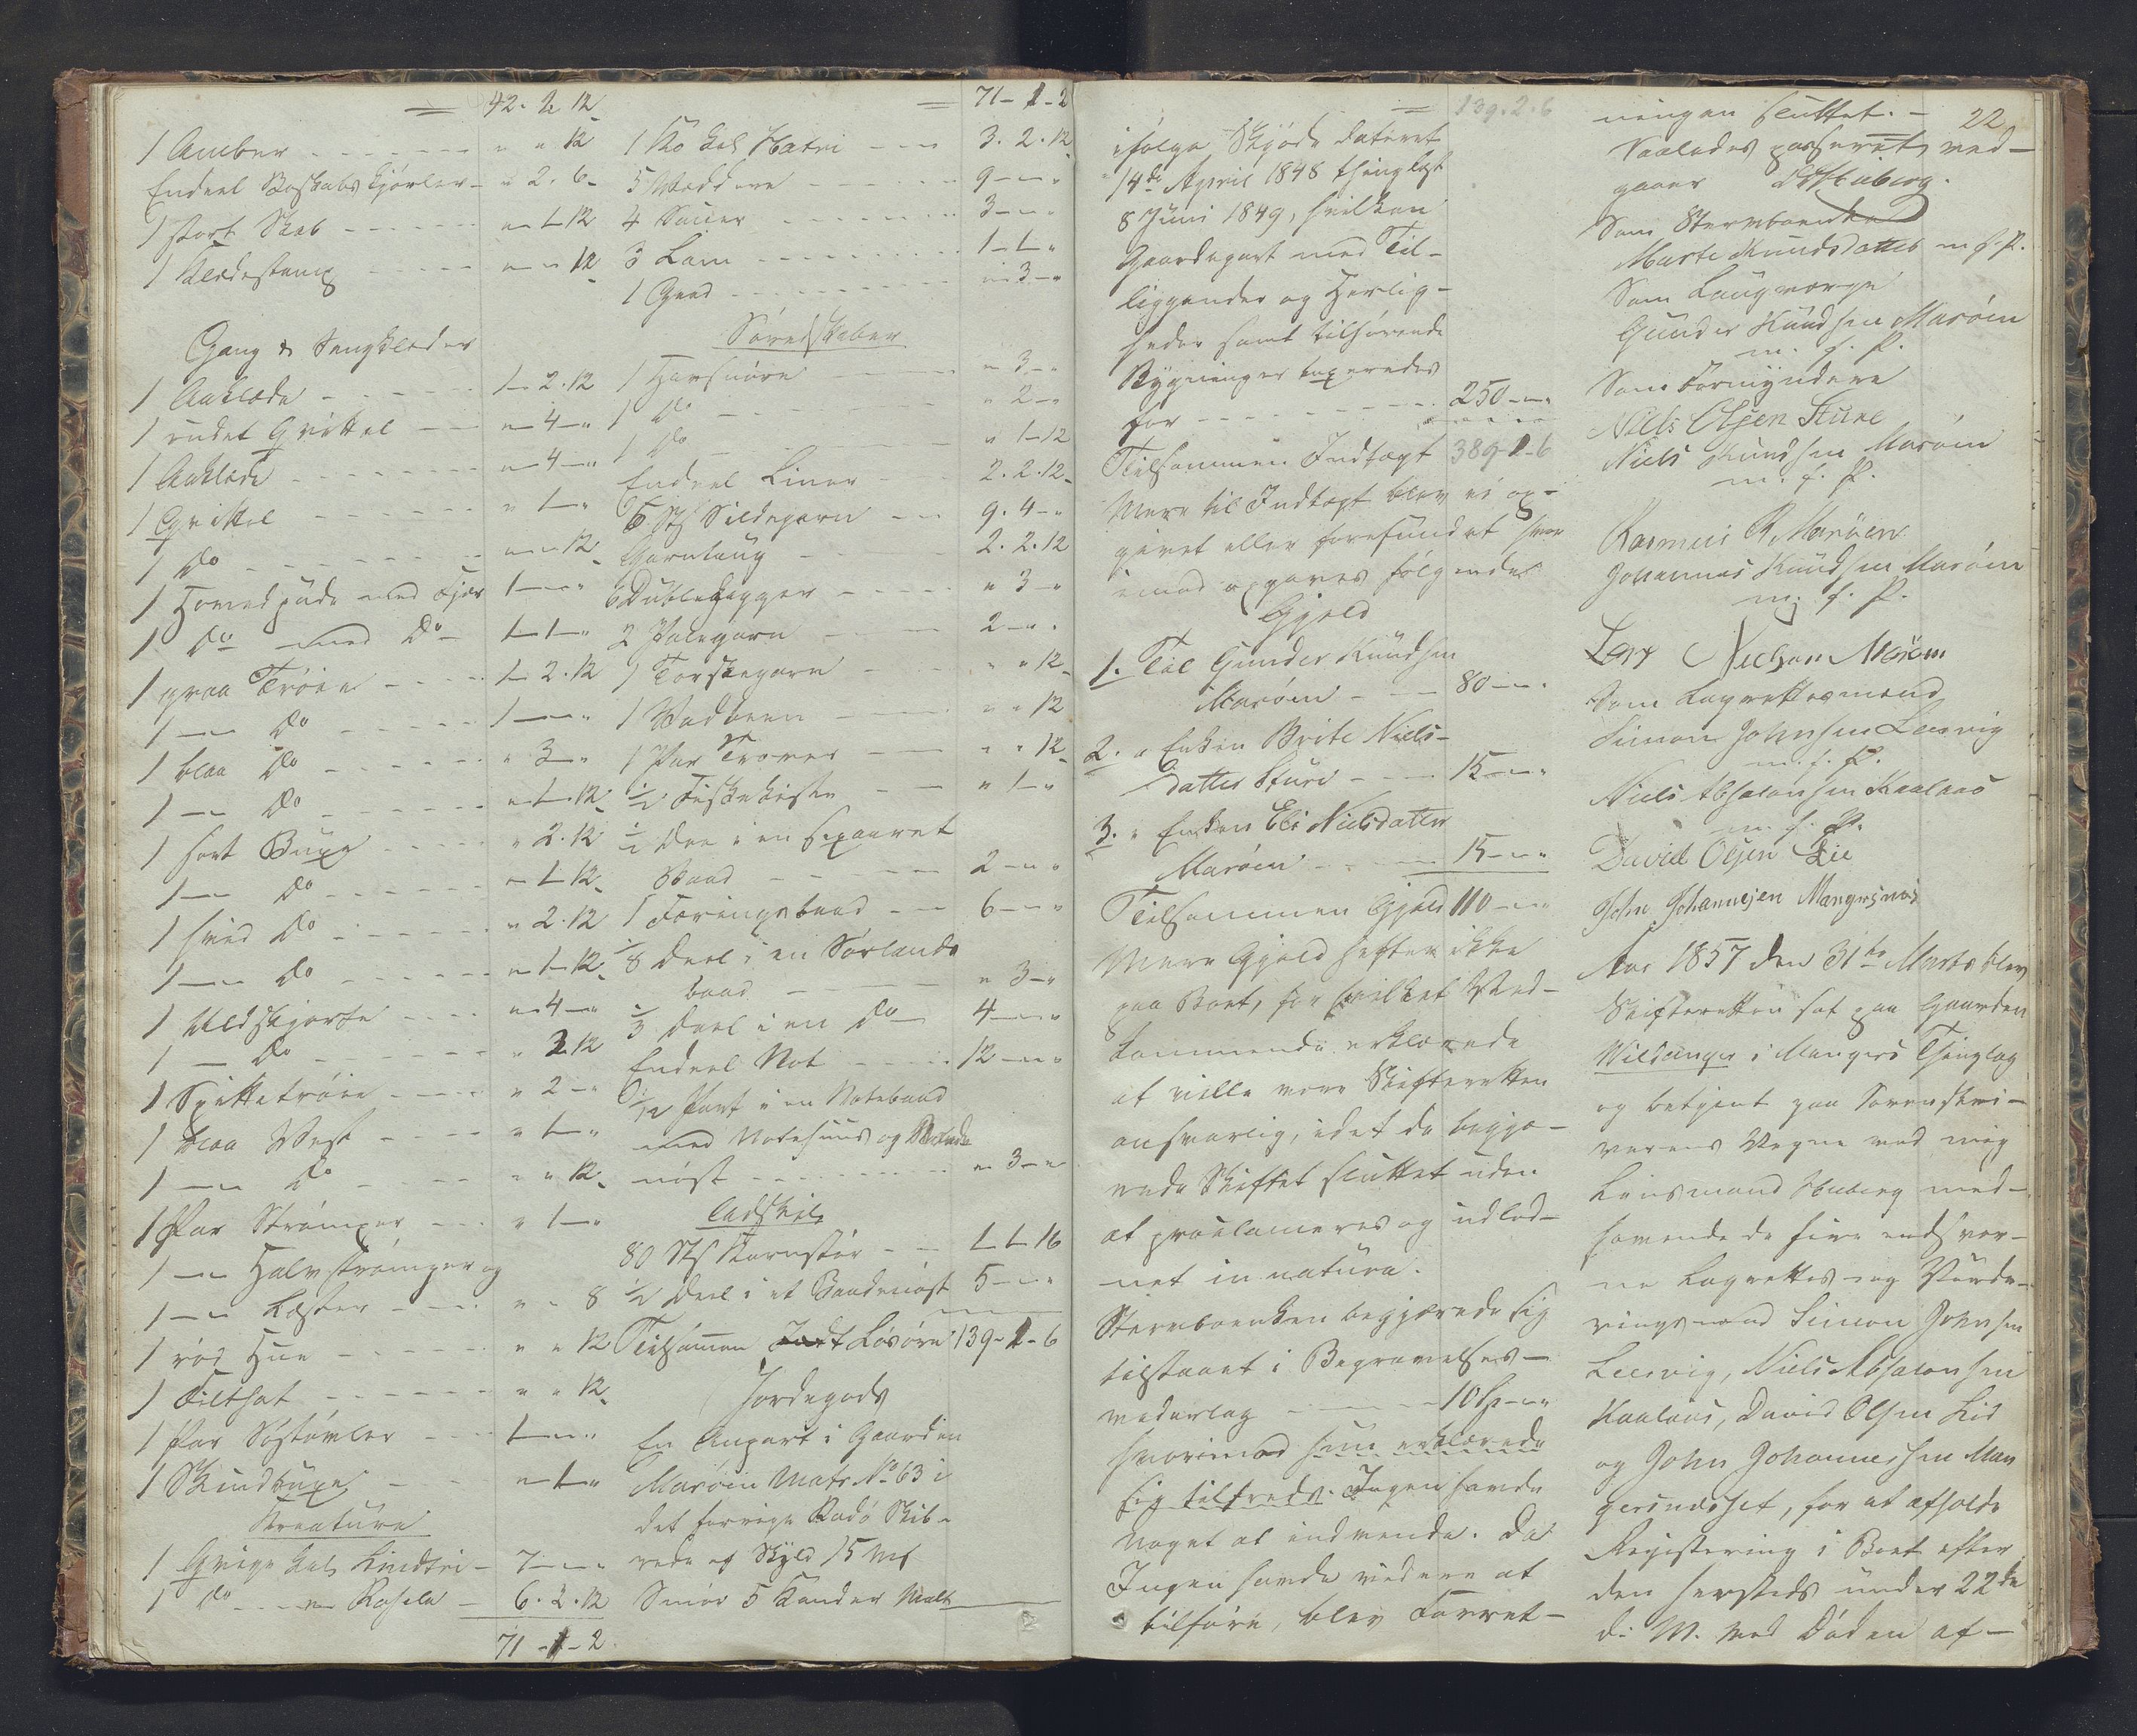 42. 2. 12
1 Ambar - - - " " 12
Endeel Boskabs Kjørler - " 2. 6
1 stort Skab - - - " 1 12
1 Klædestamp - - - " " 12
Gang & Sengklæder
1 Aaklæde - - - 1 - 2. 12
1 rudet Grittel - - - " 4 - "
1 Aaklæde - - - " 4 - "
1 Grittel - - - " 1 - "
1 Do - - - " " 12
1 Hovedpude med Fjær 1 - " "
1 Do med Do - 1 - 1 - "
1 graa Trøie - - - 1 - 2. 12
1 - Do - - - 1 - " "
1 blaa Do - - - " 3 - "
1 - Do - - - " 1 - 12
1 sort Buxe - - - " 2. 12
1 - Do - - - " 1 - 12
1 hvid Do - - - " 2. 12
1 - Do - - - " 1 - 12
1 Uldskjorte - - - " 4 - "
1 - Do - - - " 2 12
1 Spittetrøie - - - " 2 - "
1 blaa Vest - - - " 1 - "
1 - Do - - - " " 12
1 Par Strømper - - - " 1 - "
1 - Halvstrømper og
1 - Læster - - - " " 8
1 rød Hue - - - " " 12
1 Filthat - - - " " 12
1 Par Søstøvler - - - 1 - " "
1 Skindbuxe - - - " 1 - "
Kreature
1 Qvige kals Lindtri - 7 - " "
1 Do - " Rosela - 6. 2. 12
71 - 1 - 2
71 - 1 - 2
1 Ko kals Statri - - - 3. 2. 12
5 Væddere - - - 9 - " "
4 Sauer - - - 3 - " "
3 Lam - - - 1 - 1 - "
1 Geed - - - " 3 - "
Søredskaber
1 Harsnøre - - - " 3 - "
1 Do - - - " 2 - "
1 Do - - - " 1 - 12
Endeel Liner - - - 2. 2. 12
6 Stk Sildegarn - - - 9. 4 - "
Garntaug - - - 2. 2. 12
6 Dubletægger - - - " 3 - "
2 Palegarn - - - 2 - " "
1 Torskegarn - - - " " 12
1 Vadbeen - - - " " 12
1 Par Trover - - - " " 12
1/2 Fiskekiste - - - " 1 - "
1/2 Dee i en sexaaret
Baad - - - 2 - " "
1 Færingsbaad - - - 6 - " "
1/8 Deel i en Sørlands
baad - - - " 3 - "
1/3 Deel i en Do 4 - " "
Endeel Not - - - 12 - " "
1/12 Part i en Notebaad
med Notehuus og
nøst - - - " 3 - "
Adskil
80 Stk Kornstør - - 1 - 1 - 16
1/2 Deel i et Baadenøst 5 - " "
Tilsammen Løsøre 139 - 1 - 6
Jordegods
En Anpart i Gaarden
Marøen Matr. No 63 i
det forrige Radø Skib-
rede af Skyld 15 Mk
Smør 5 Kander Malt
139. 2. 6
ifølge Skjøde dateret
14de April 1848 thinglæst
8 Juni 1849, hvilken
Gaardepart med Til-
liggender og Herlig-
heder samt tilhørende
Bygninger taxeredes
for - - - 250 - " "
Tilsammen Indtægt 389 - 1 - 6
Mere til Indtægt blev ei op-
givet eller forefundet hvor
imod opgaves følgende
Gjeld
1. Til Gunder Knudsen
Marøen - - - 80 - " "
2. " Enken Brite Niels-
datter Sture - - - 15 - " "
3. " Enken Eli Nielsdatter
Marøen - - - 15 - " "
Tilsammen Gjeld 110 - " "
Mere Gjeld hefter ikke
paa Boet, for hvilket Ved-
kommende erklærede
at ville være Skifteretten
ansvarlig, idet de begjæ-
rede Skiftet sluttet uden
at proclameres og udlod-
net in natura.
Stervboenken begjærede sig
tilstaaet i Begravelses-
vederlag - - - 10 Sp - " "
hvorimod hun erklærede
sig tilfreds. Ingen havde
Noget at indvende. Da
Ingen havde videre at
tilføre, blev Forret-
22
ningen sluttet. -
Saaledes passeret, ved-
gaaer
Som Stervboenke
Marte Knudsdatter m. f. P.
Som Laugværge
Gunder Knudsen Marøen
m. f. P.
Som Formyndere
Niels Olsen Sture
Niels Knudsen Marøen
m. f. P.
Rasmus R. Marøen
Johannes Knudsen Marøen
m. f. P.
Lars Nielsen Marøen
Som Lagrettesmænd
Simon Johnsen Leervig
m. f. P.
Niels Absalonsen Kaalaas
m. f. P.
David Olsen Lie
John Johannesen Mangersnæs
Aar 1857 den 31te Marts blev
Skifteretten sat paa Gaarden
Wildanger i Mangers Thinglag
og betjent paa Sorenskri-
verens Vegne ved mig
Lensmand Huberg med-
havende de fire eedsvor-
ne Lagrettes- og Vurde-
ringsmænd Simon Johnsen
Leervig, Niels Absalonsen
Kaalaas, David Olsen Lid
og John Johannessen Man
gersnæset, for at afholde
Registering i Boet efter
den hersteds under 22de
d: M. ved Døden af-